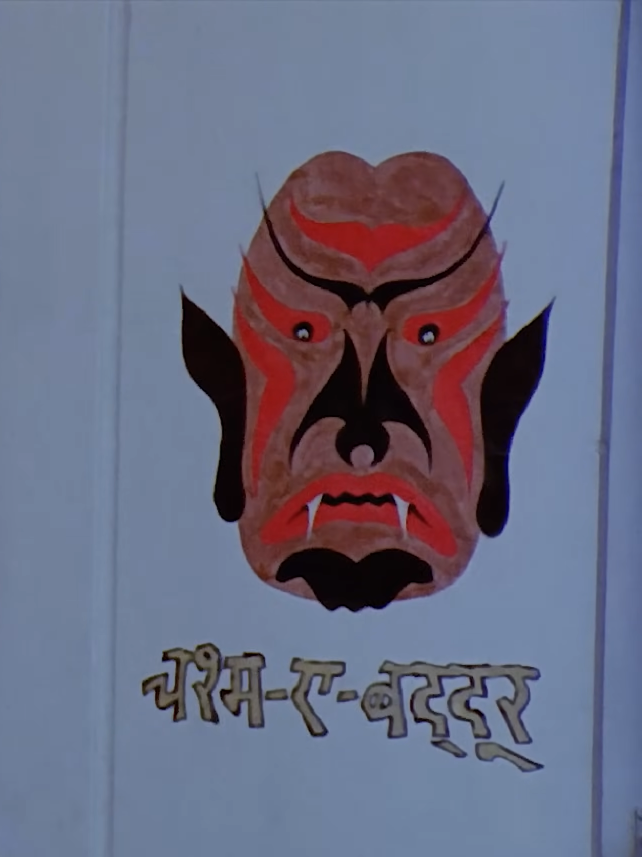 चश्म-ए-बद्दूर